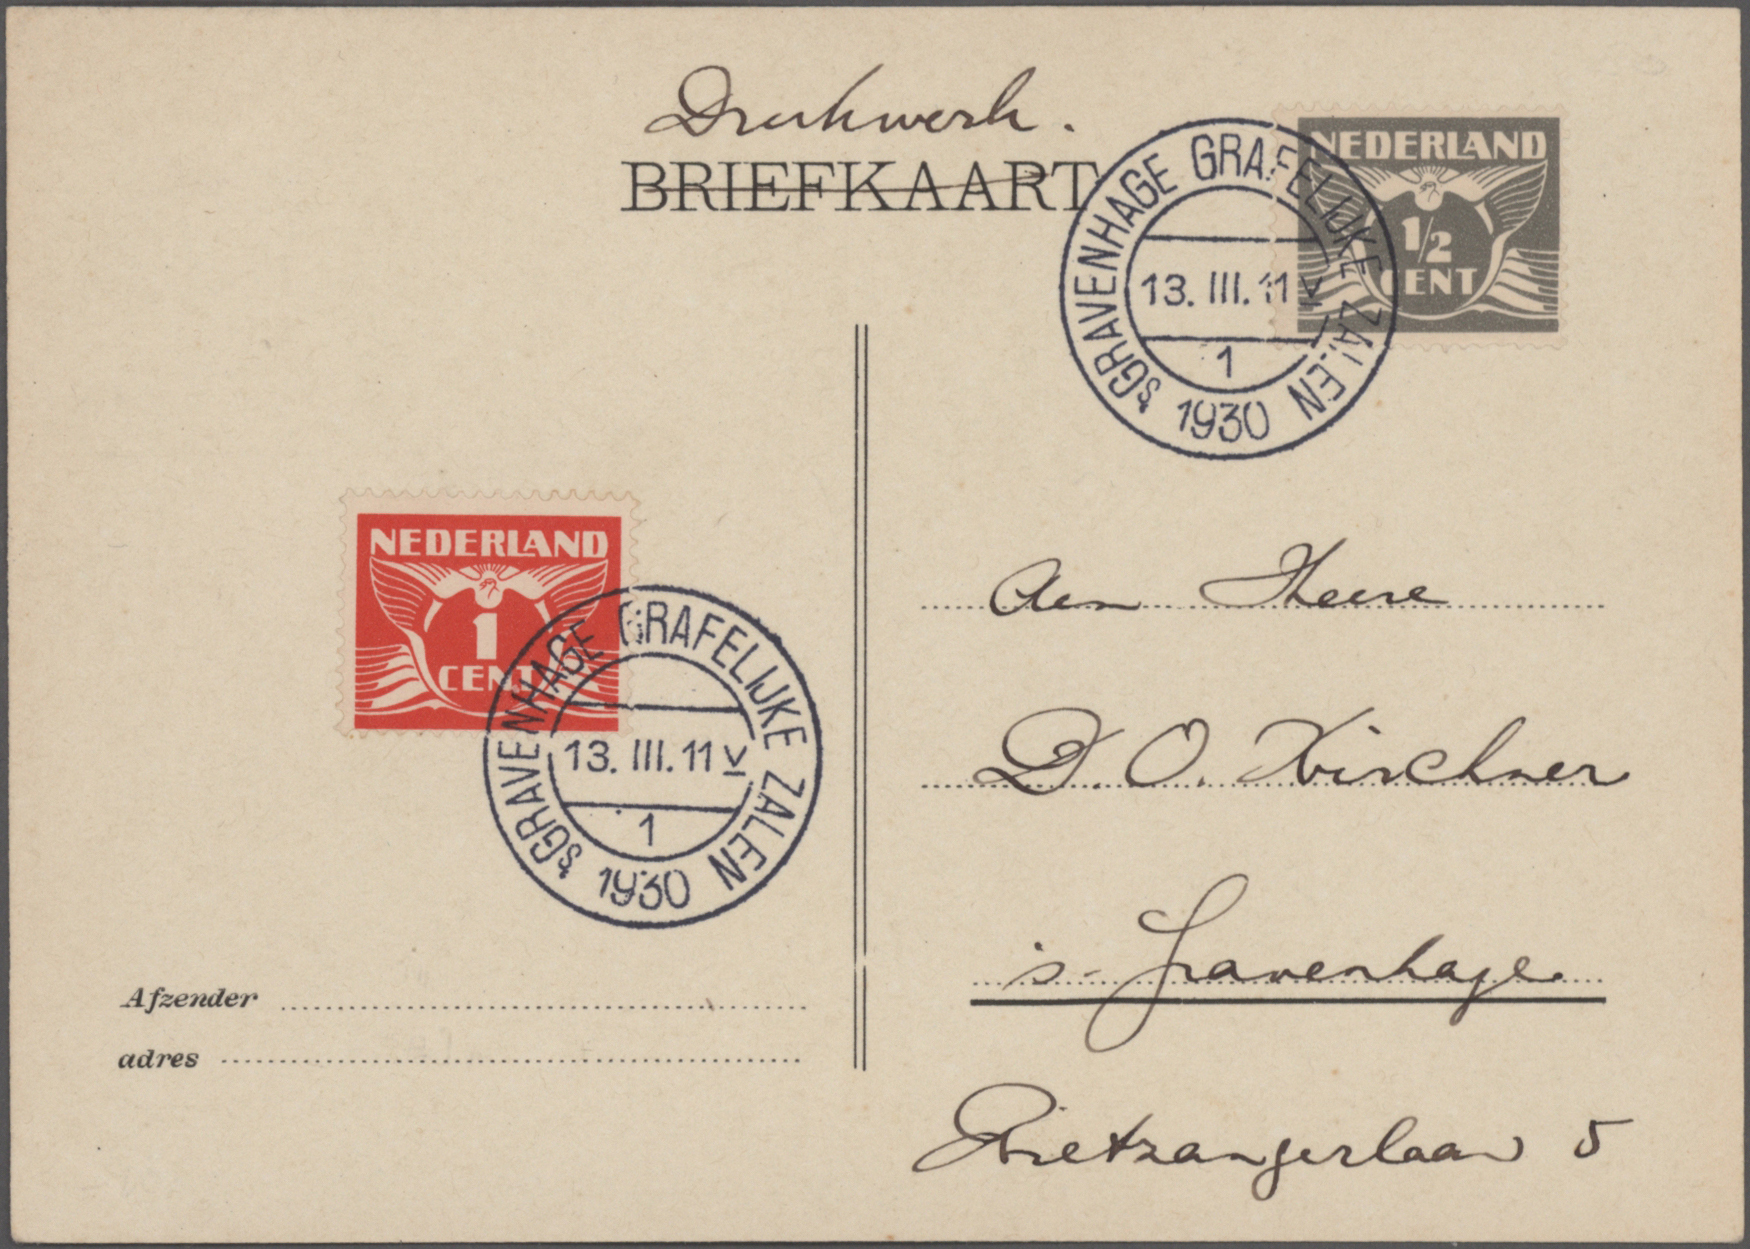 Drukwerk.
BRIEFKAART
NEDERLAND
1/2
CENT
'sGRAVENHAGE GRAFELIJKE ZALEN
13. III. 11 V
1
1930
NEDERLAND
1
CENT
'sGRAVENHAGE GRAFELIJKE ZALEN
13. III. 11 V
1
1930
Den Heere
D. O. Kirchner
's-Gravenhage.
Rietzangerlaan 5
Afzender
adres